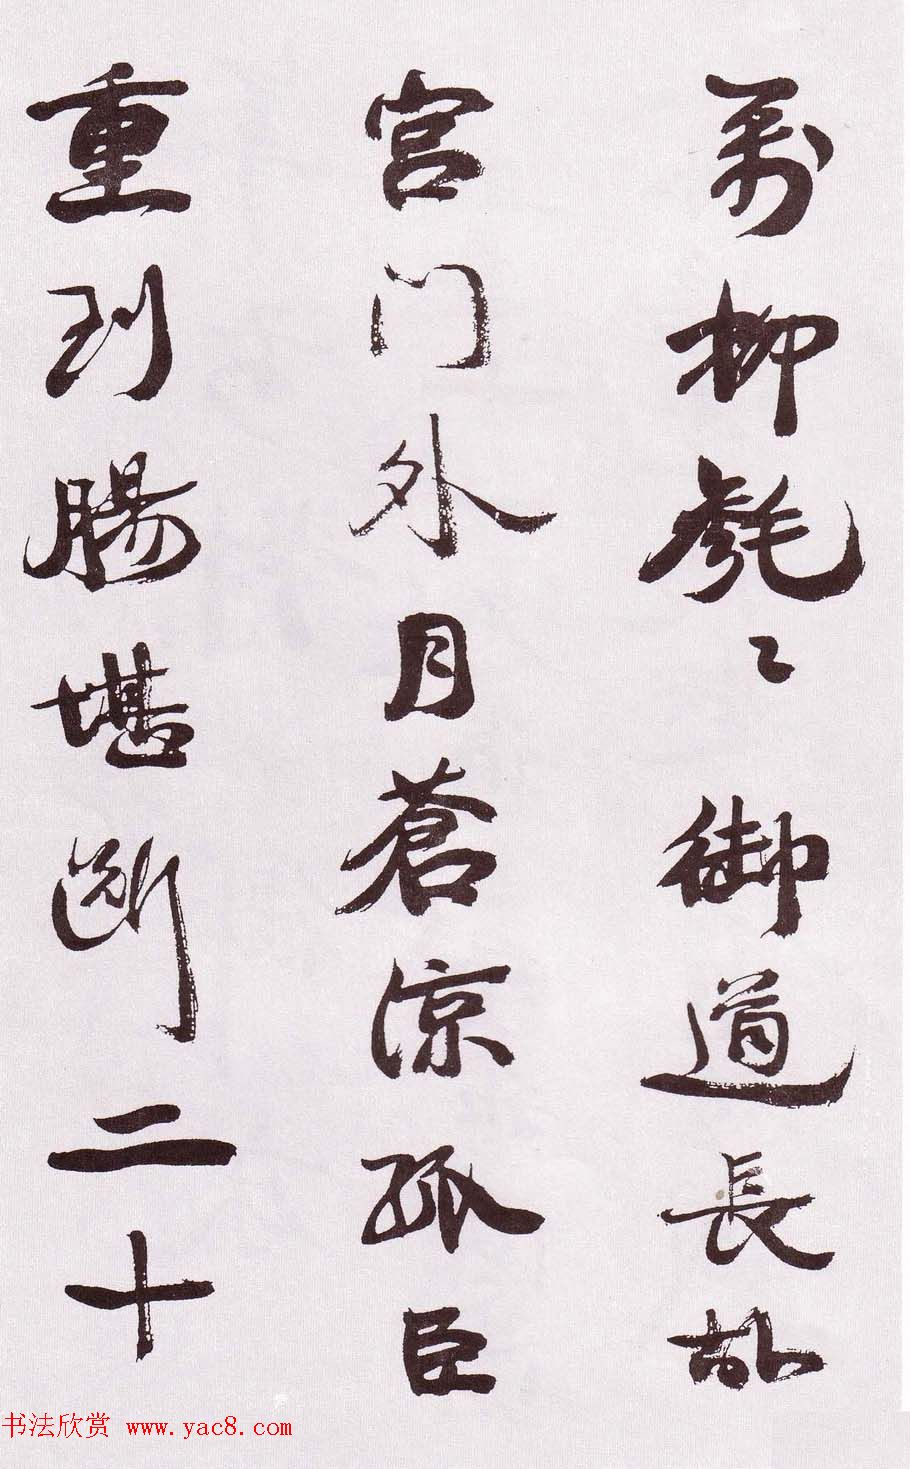 萬柳毿〻御道長故
宮門外月蒼涼孤臣
重到腸堪斷二十
书法欣赏 www.yac8.com